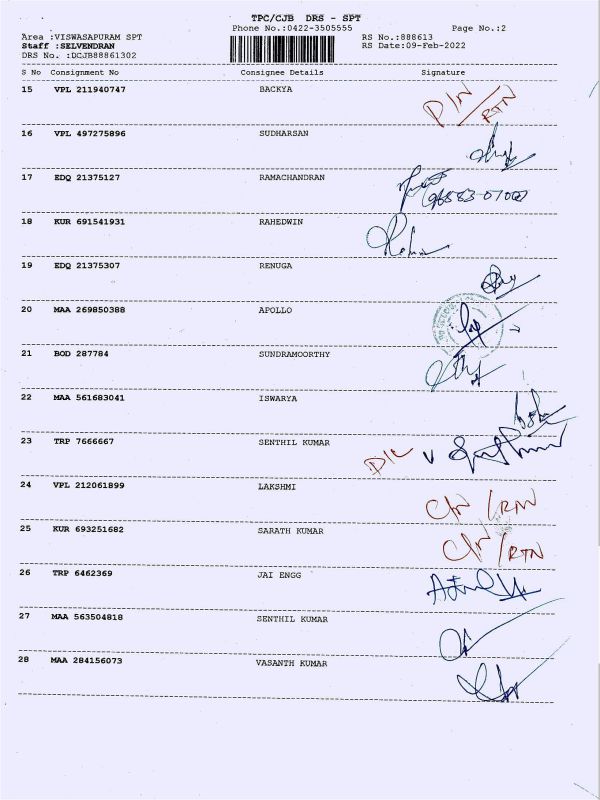 TPC/CJB DRS - SPT
Phone No.:0422-3505555 Page No.:2
Area :VISWASAPURAM SPT RS No.:888613
Staff :SELVENDRAN RS Date:09-Feb-2022
DRS No. :DCJB88861302
S No Consignment No Consignee Details Signature
15 VPL 211940747 BACKYA D/N/RTN
16 VPL 497275896 SUDHARSAN
17 EDQ 21375127 RAMACHANDRAN
18 KUR 691541931 RAHEDWIN
19 EDQ 21375307 RENUGA
20 MAA 269850388 APOLLO
21 BOD 287784 SUNDRAMOORTHY
22 MAA 561683041 ISWARYA
23 TRP 7666667 SENTHIL KUMAR D/L
24 VPL 212061899 LAKSHMI C/N/RTN
25 KUR 693251682 SARATH KUMAR C/N/RTN
26 TRP 6462369 JAI ENGG
27 MAA 563504818 SENTHIL KUMAR
28 MAA 284156073 VASANTH KUMAR